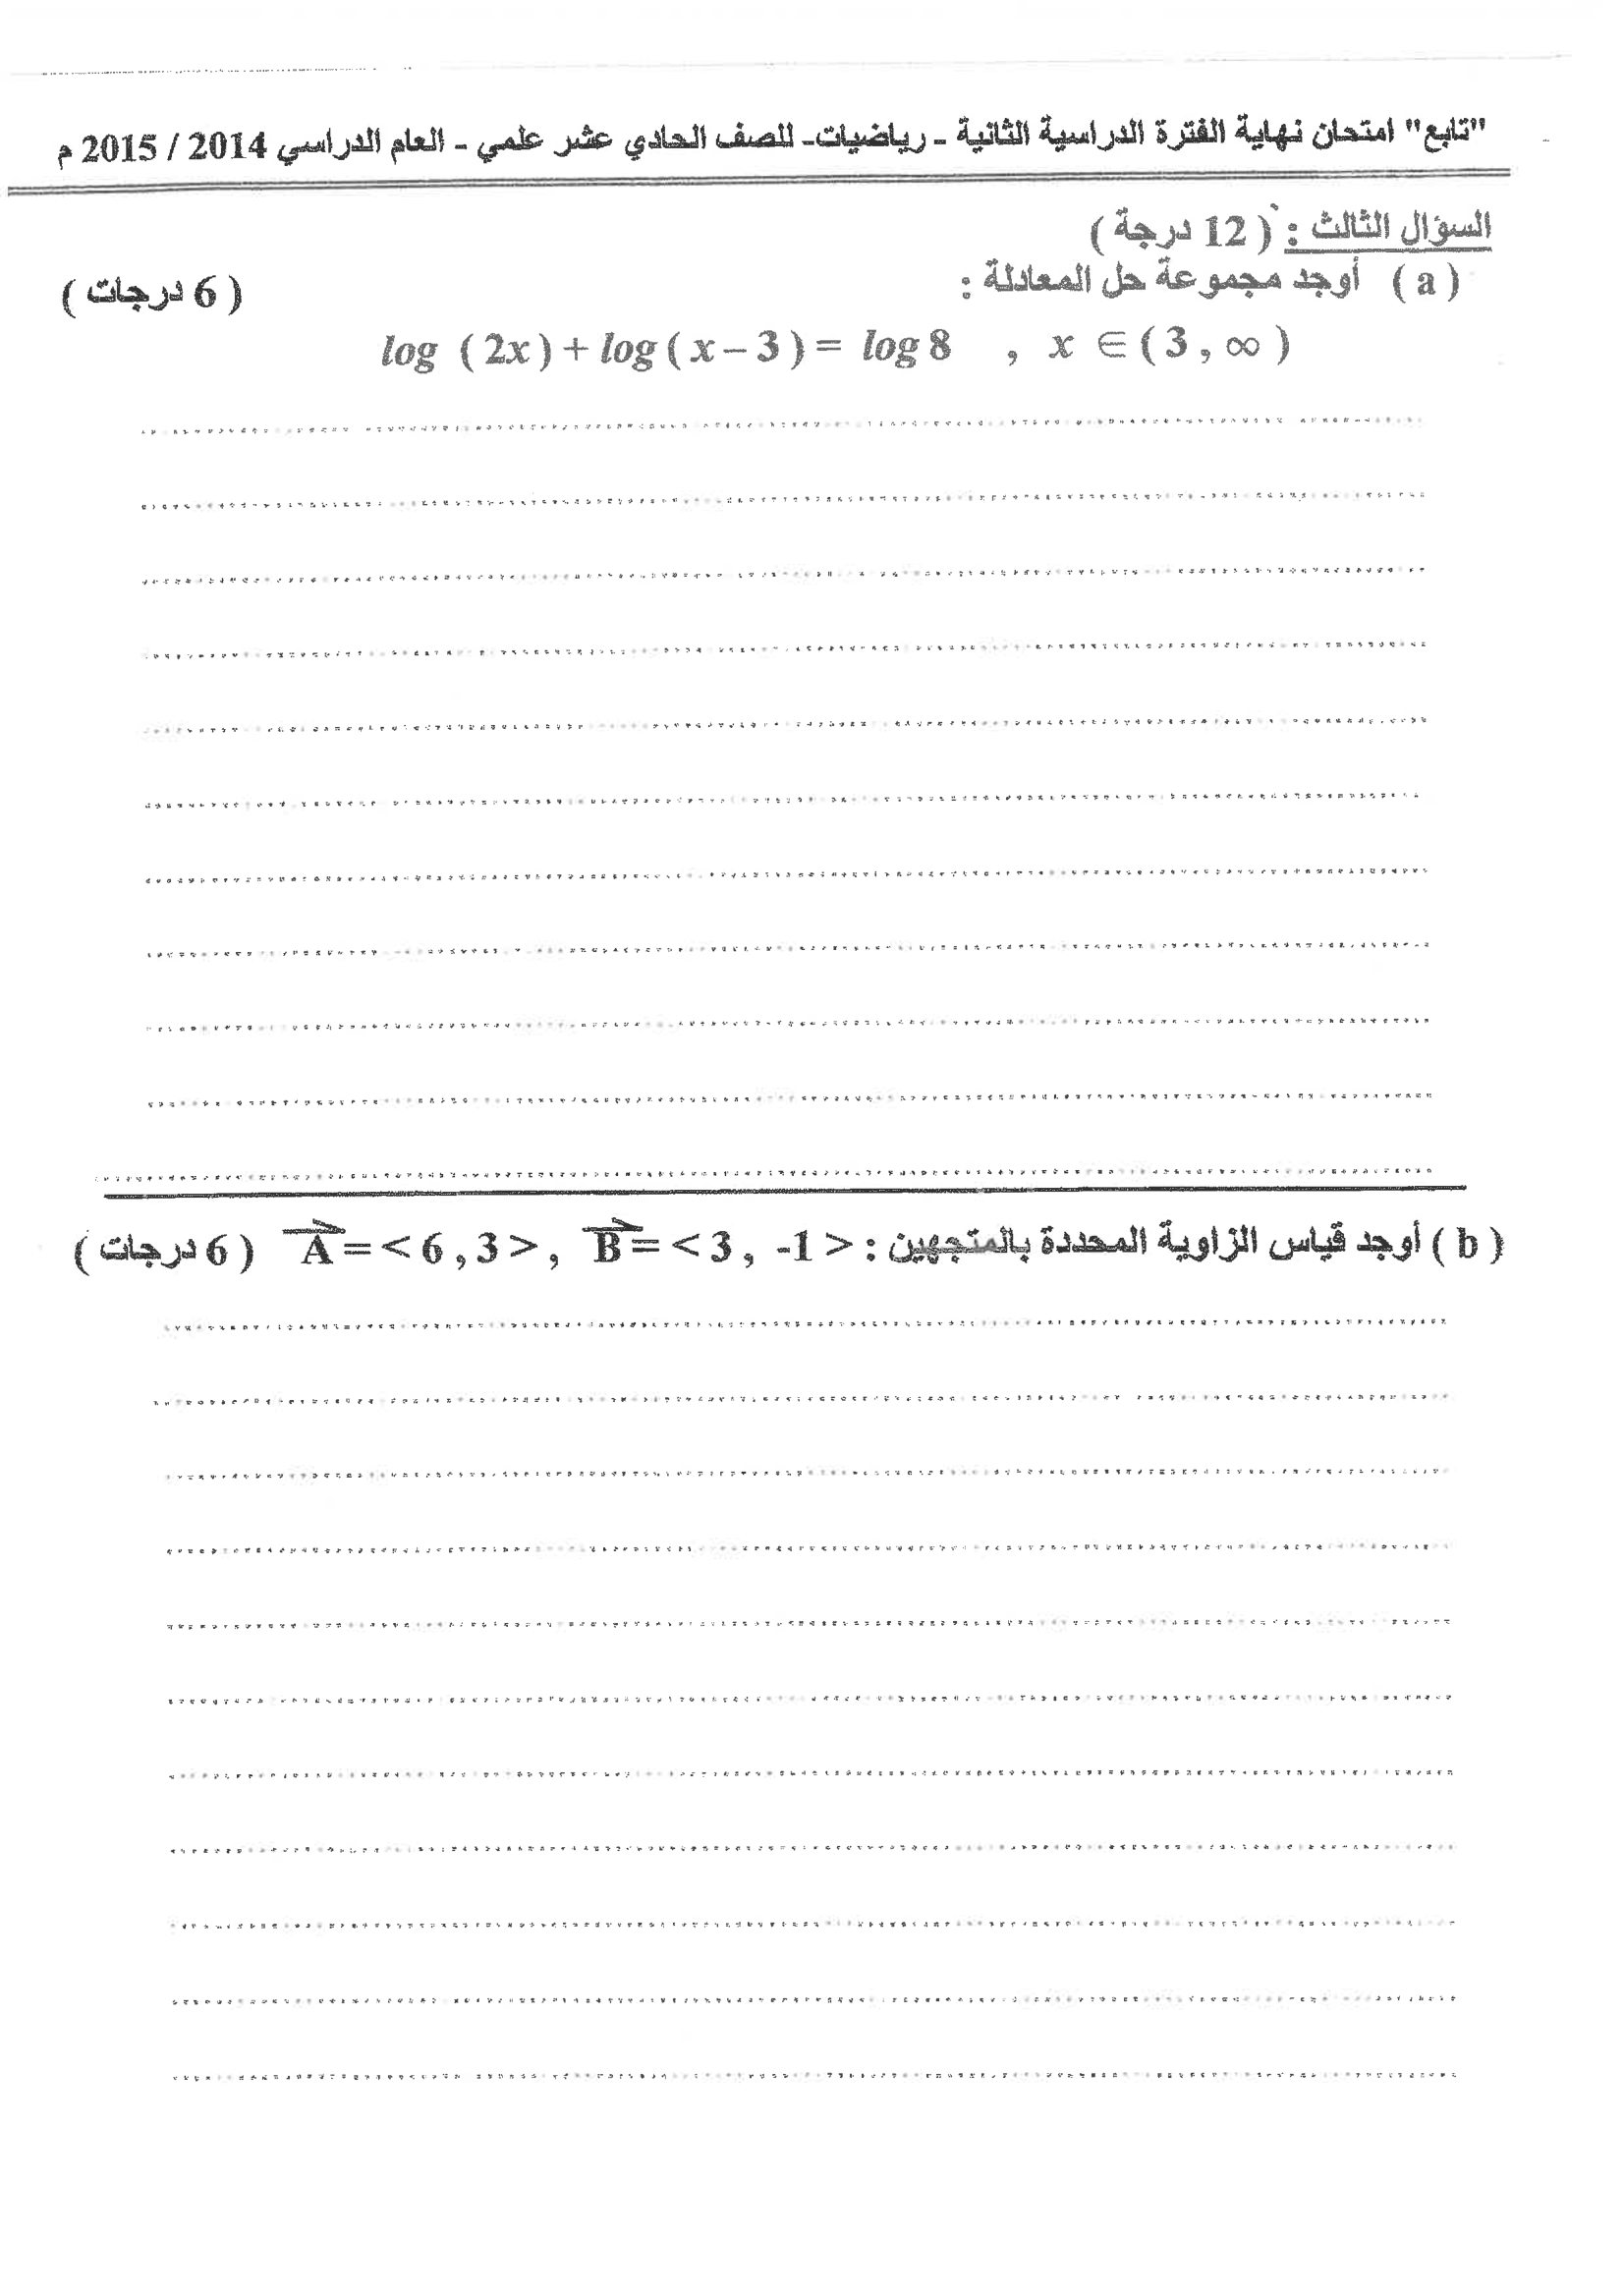 "تابع" امتحان نهاية الفترة الدراسية الثانية - رياضيات- للصف الحادي عشر علمي - العام الدراسي 2014 / 2015 م
السؤال الثالث : ( 12 درجة )
( a ) أوجد مجموعة حل المعادلة : ( 6 درجات )
log ( 2x ) + log ( x – 3 ) = log 8 , x ∈ ( 3 , ∞ )
( b ) أوجد قياس الزاوية المحددة بالمتجهين : A = < 6 , 3 > , B = < 3 , -1 > ( 6 درجات )